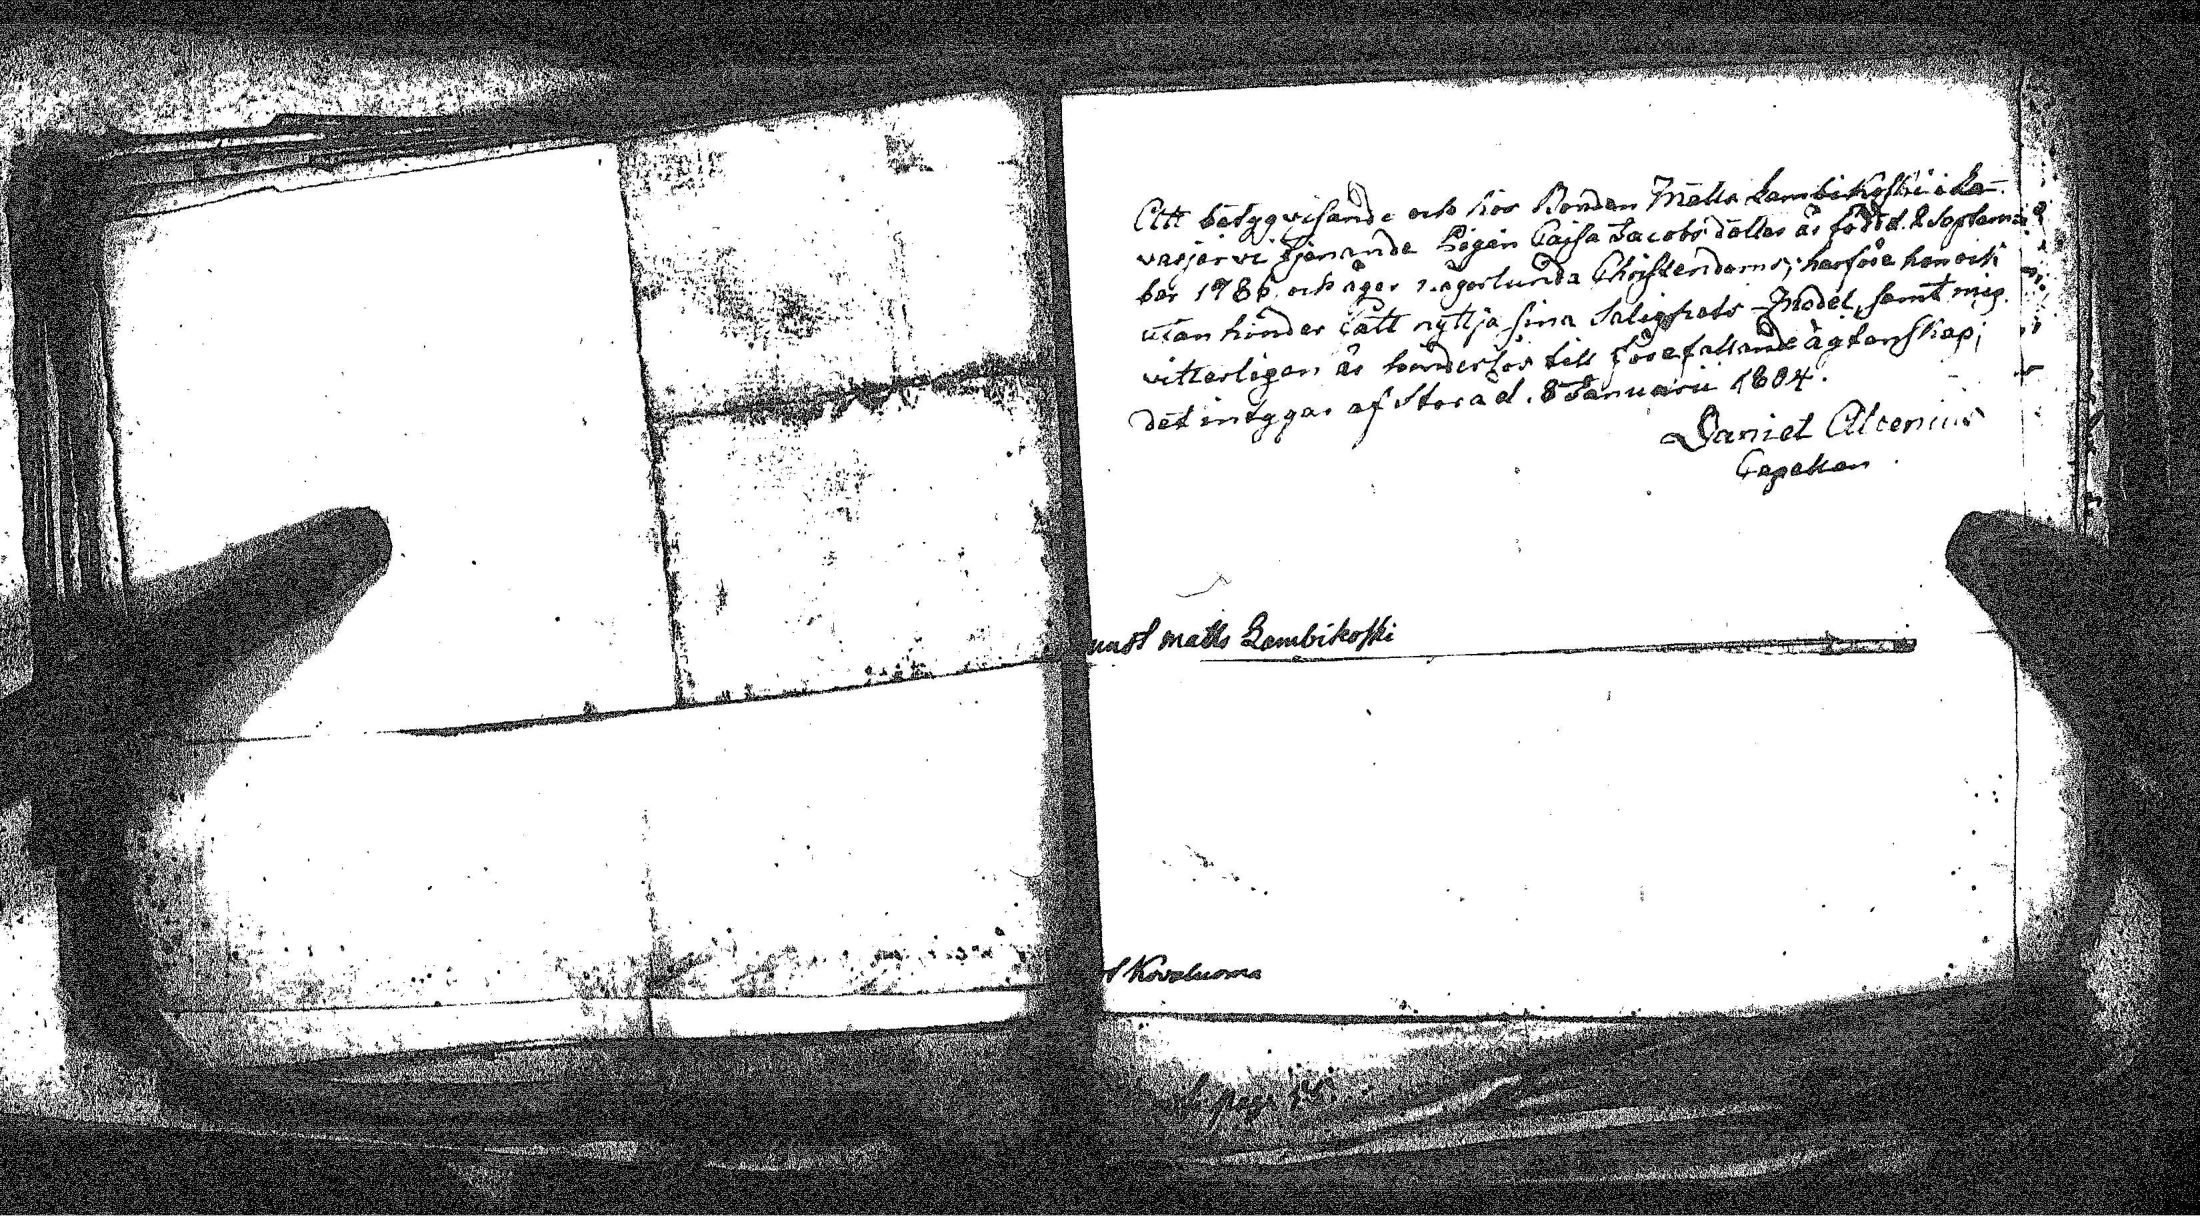 Att betygg visande och hos Bonden Matts Lambikoski i La-
vasjervi tjenande Pigan Cajsa Jacobs dotter är född d. 2 Septem-
ber 1786, och äger någorlunda Christendoms; härföre hon ock
utan hinder att nyttja sina Salighets Medel, samt meg
vitterligen är hinderlös till förefallande ägtenskap;
det intyggar af Storå d. 8 Januarii 1804.
Daniel Alcenius
Capellan
Matts Lambikoski
Kovaluoma